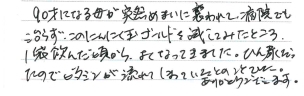 90才になる母が突然めまいに襲われて、病院でも
治らず、このにんにく玉ゴールドを試してみたところ、
1袋飲んだ頃から、よくなってきました。ひん尿だっ
たのでビタミンが流れてしまっているとのことでした。
ありがとうございます。